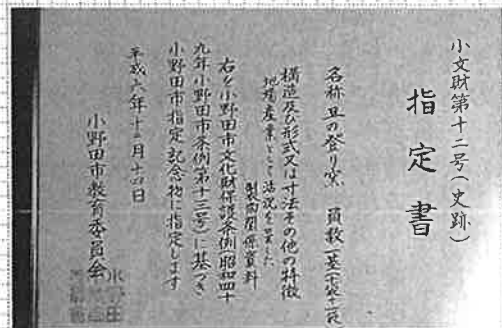 小文財第十二号(史跡)
指定書
名称 旦の登り窯 員数 一基
構造及び形式又は寸法その他の特徴
地場産業として活況を呈した
製陶関係資料
右を小野田市文化財保護条例(昭和四十
九年小野田市条例第十三号)に基づき
小野田市指定記念物に指定します
平成六年十二月十四日
小野田市教育委員会